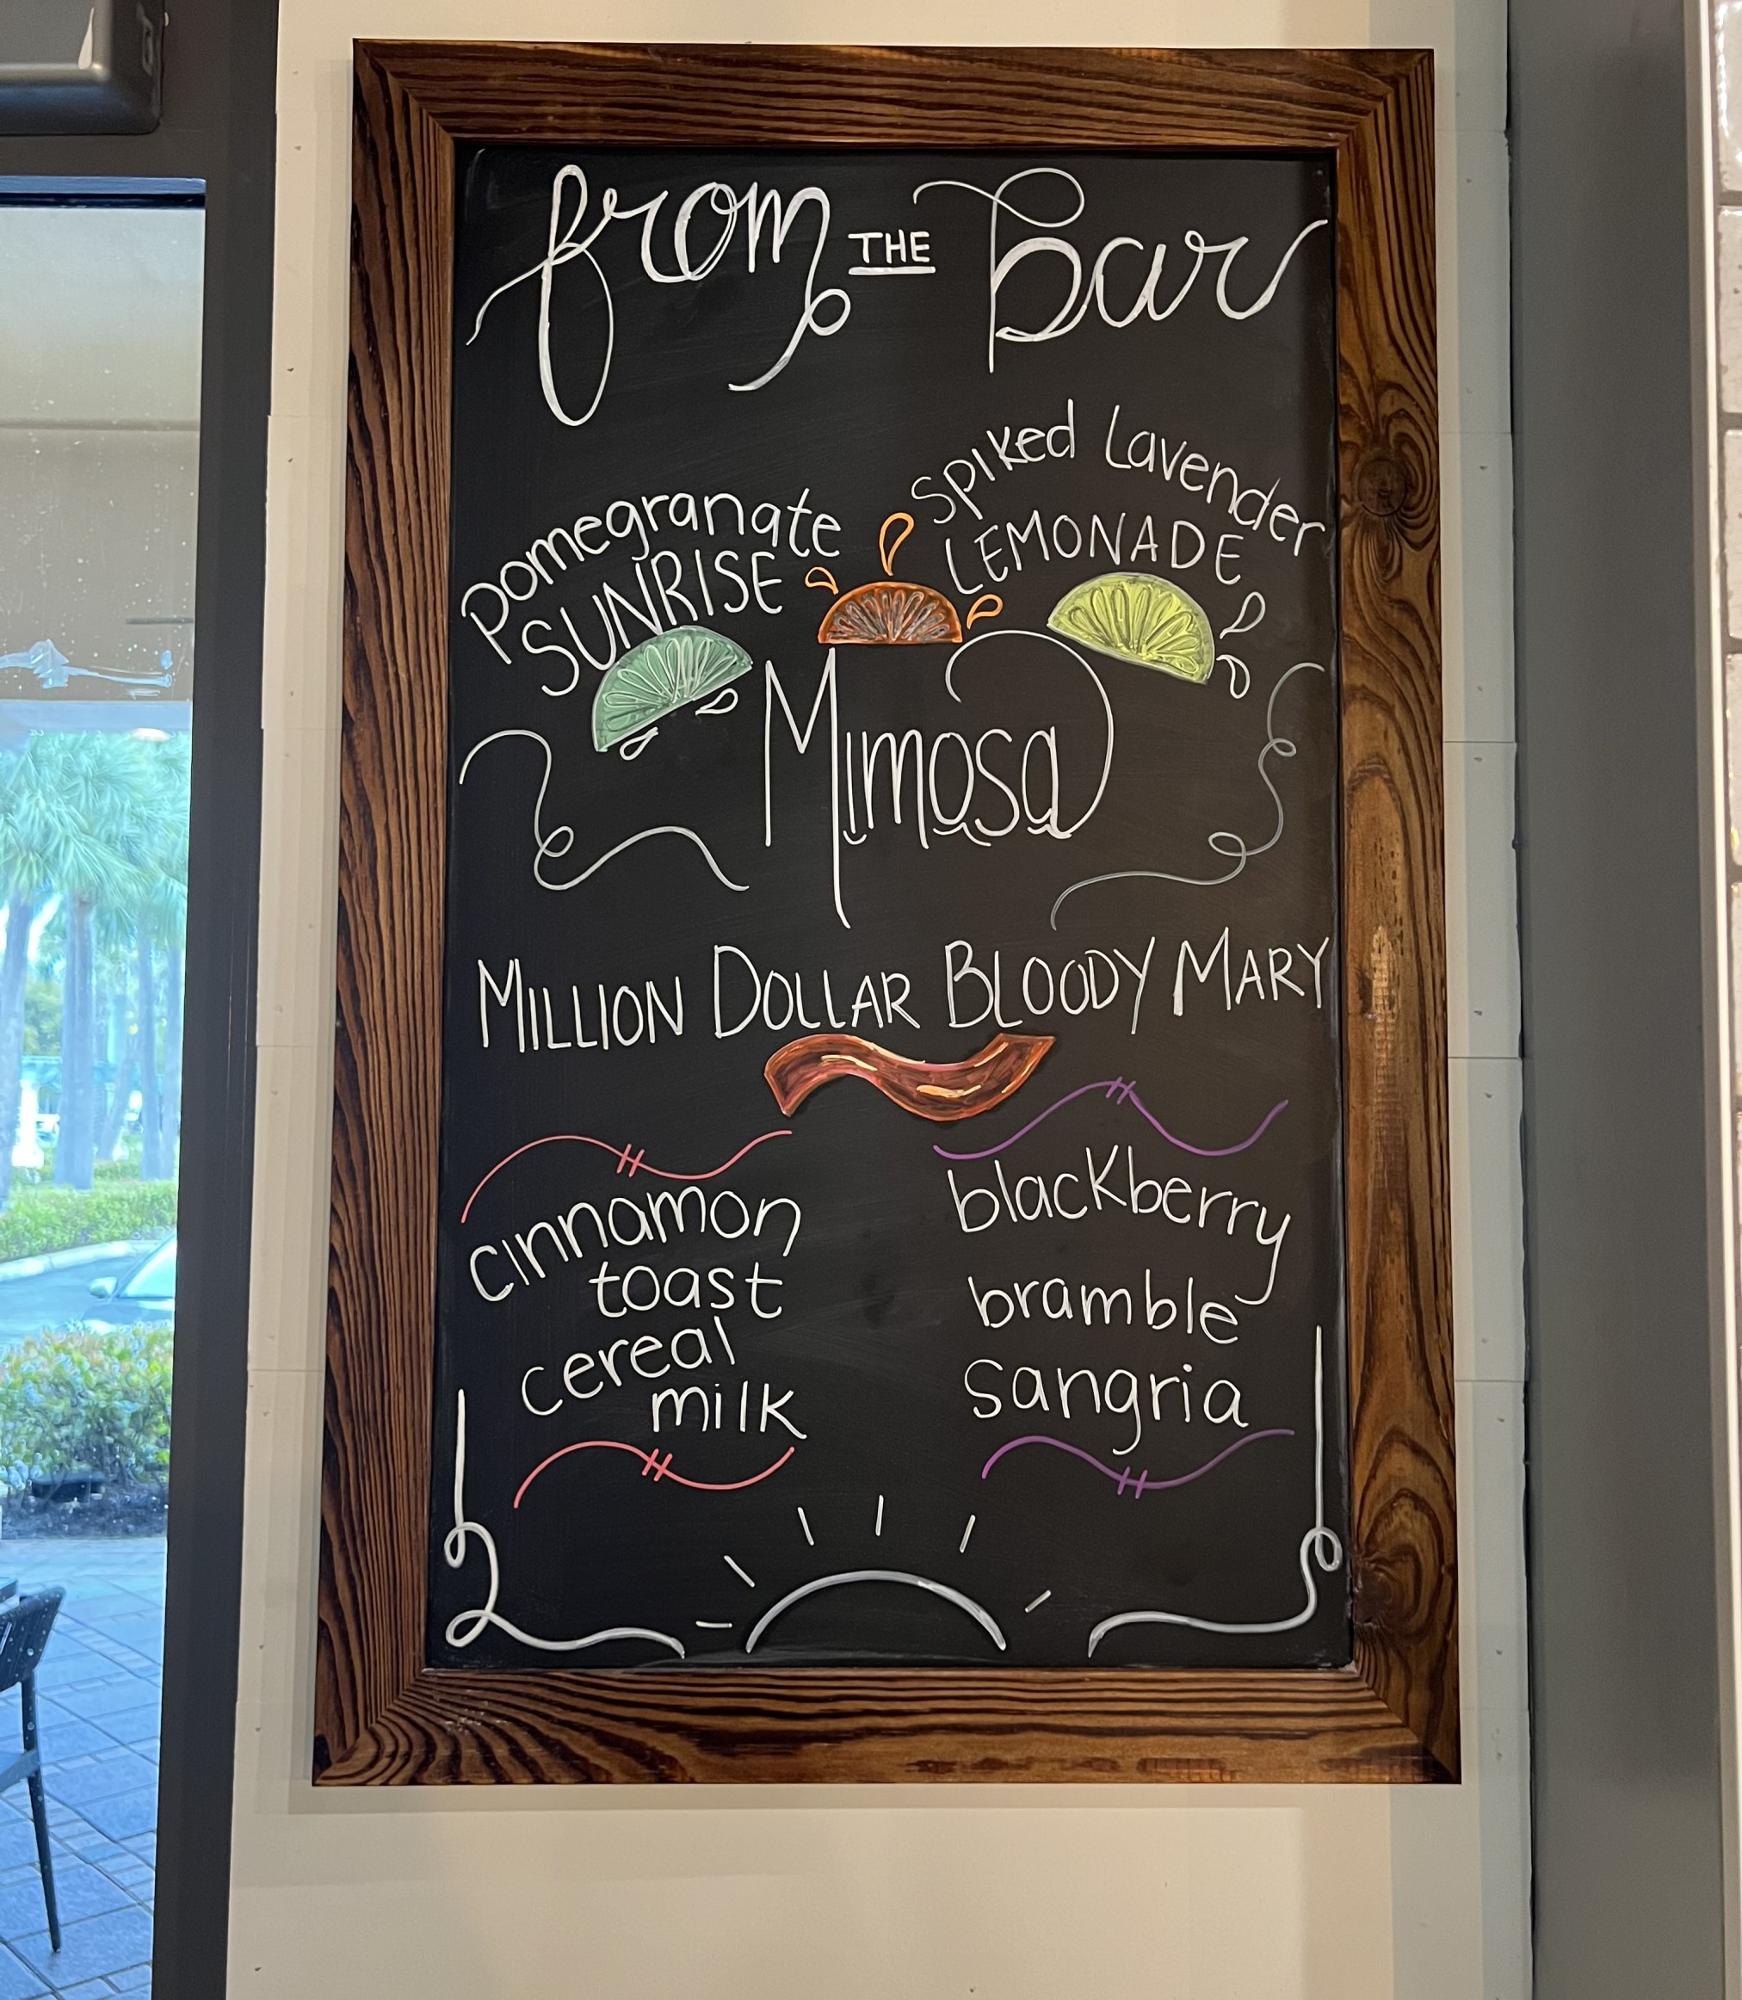 from THE bar
pomegranate
SUNRISE
Spiked Lavender
LEMONADE
Mimosa
MILLION DOLLAR BLOODY MARY
cinnamon
toast
cereal
milk
blackberry
bramble
sangria